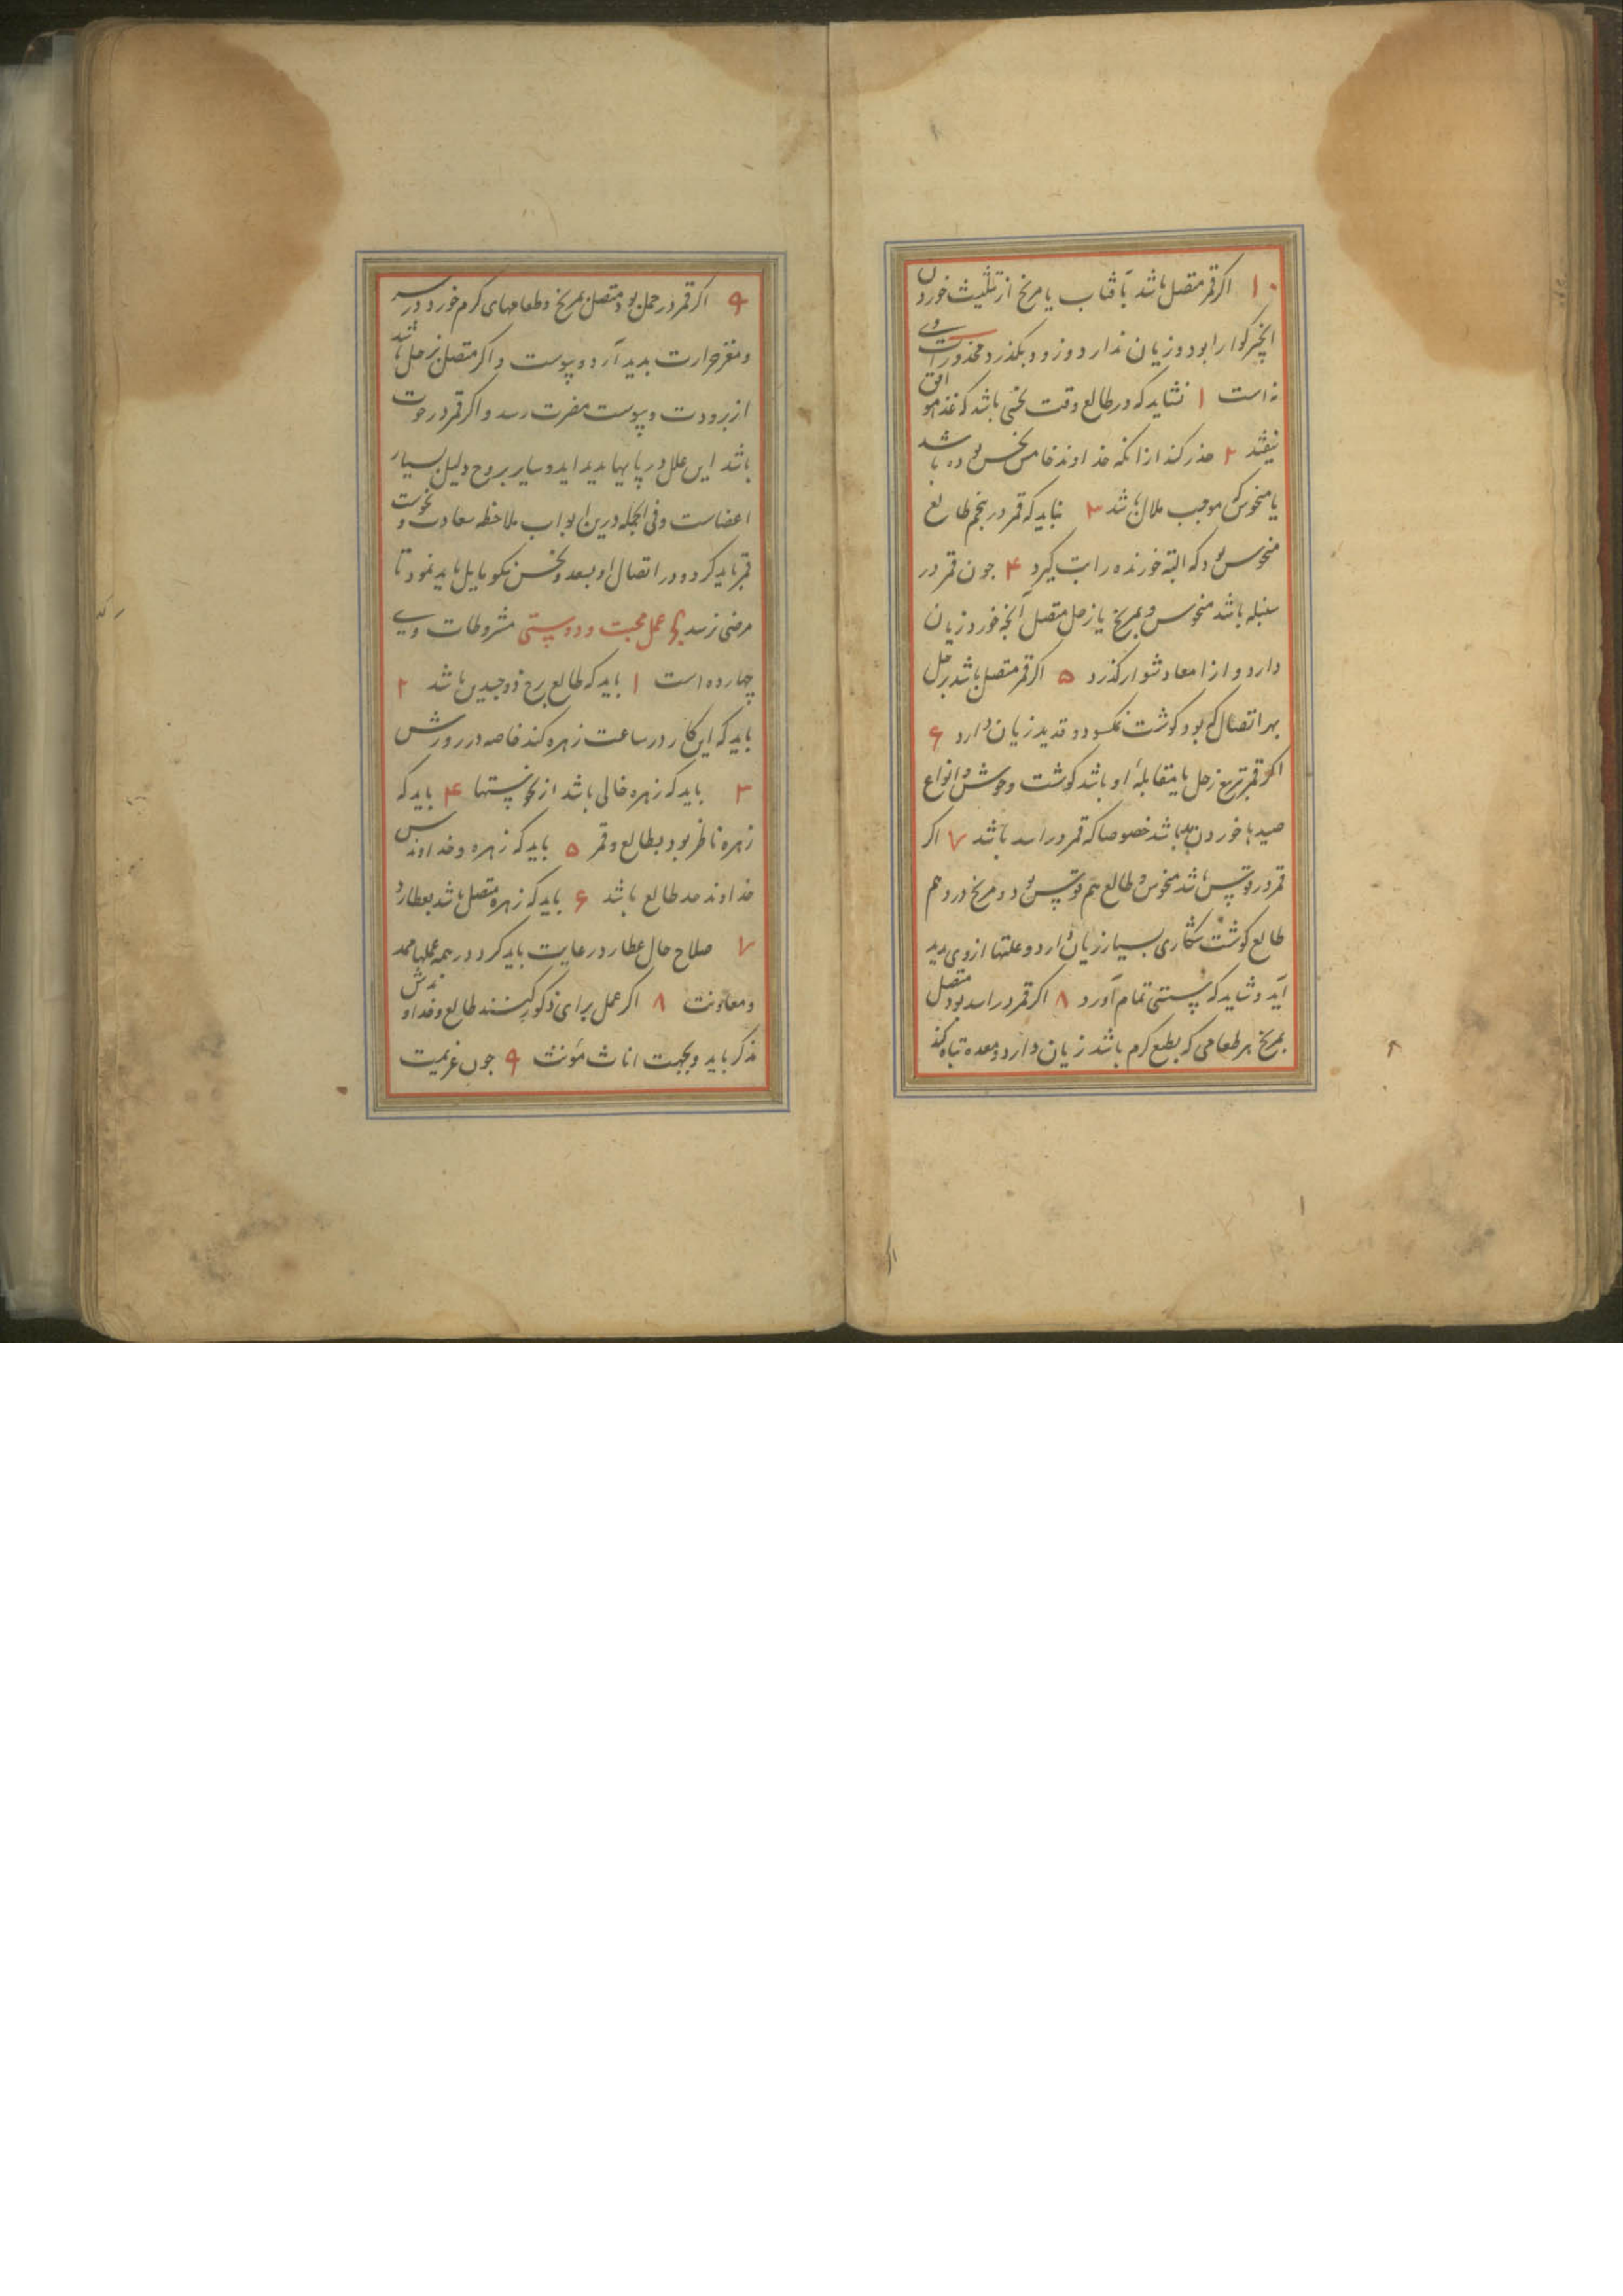 ۱۰ اکر قمر متصل باشد بآفتاب یا مریخ از تثلیث خوردن
انچه کوارا بود و زیان ندارد و زود بکذرد محذورات وی
نه است ۱ نشاید که در طالع وقت نحسی باشد که غذا موافق
نیفتد ۲ حذر کند از انکه خداوند خامس نحس بوده باشد
یا منحوس که موجب ملال باشد ۳ نباید که قمر در پنجم طالع
منحوس بود که البته خورنده را تب کیرد ۴ جون قمر در
سنبله باشد منحوس و بمریخ یا زحل متصل آنچه خورد زیان
دارد و از امعا دشوار کذرد ۵ اکر قمر متصل باشد بزحل
بهر اتصال که بود کوشت نمکسود و قدید زیان دارد ۶
اکر قمر بتربیع زحل یا مقابلهٔ او باشد کوشت وحوش و انواع
صیدها خوردن بد باشد خصوصا که قمر در اسد باشد ۷ اکر
قمر در قوس باشد منحوس و طالع هم قوس بود و مریخ درو هم
طالع کوشت شکاری بسیار زیان دارد و علتها ازوی پدید
آید و شاید که پستی تمام آورد ۸ اکر قمر در اسد بود متصل
بمریخ هر طعامی که بطبع کرم باشد زیان دارد و معده تباه کند
۹ اکر قمر در حمل بود متصل بمریخ و طعامهای کرم خورد در سر
و مغز حرارت بدید آرد و یبوست و اکر متصل بزحل باشد
از برودت و یبوست مضرت رسد و اکر قمر در حوت
باشد این علل در پایها بدید اید و سایر بروج دلیل بسیار
اعضاست و فی الجمله درین ابواب ملاحظه سعادت و نحوست
قمر باید کرد و در اتصال او بسعد و نحس نکو تامل باید نمود تا
مرضی نرسد عمل محبت و دوستی مشروطات وی
چهارده است ۱ باید که طالع برج ذو جسدین باشد ۲
باید که این کار در ساعت زهره کند خاصه در روزش
۳ باید که زهره خالی باشد از نحوستها ۴ باید که
زهره ناظر بود بطالع و قمر ۵ باید که زهره و خداوندش
خداوند حد طالع باشد ۶ باید که زهره متصل باشد بعطارد
۷ صلاح حال عطارد رعایت باید کرد در همه عملها ممد
و معاونت ۸ اکر عمل برای ذکور کنند طالع و خداوندش
مذکر باید و بجهت اناث مؤنث ۹ جون عزیمت